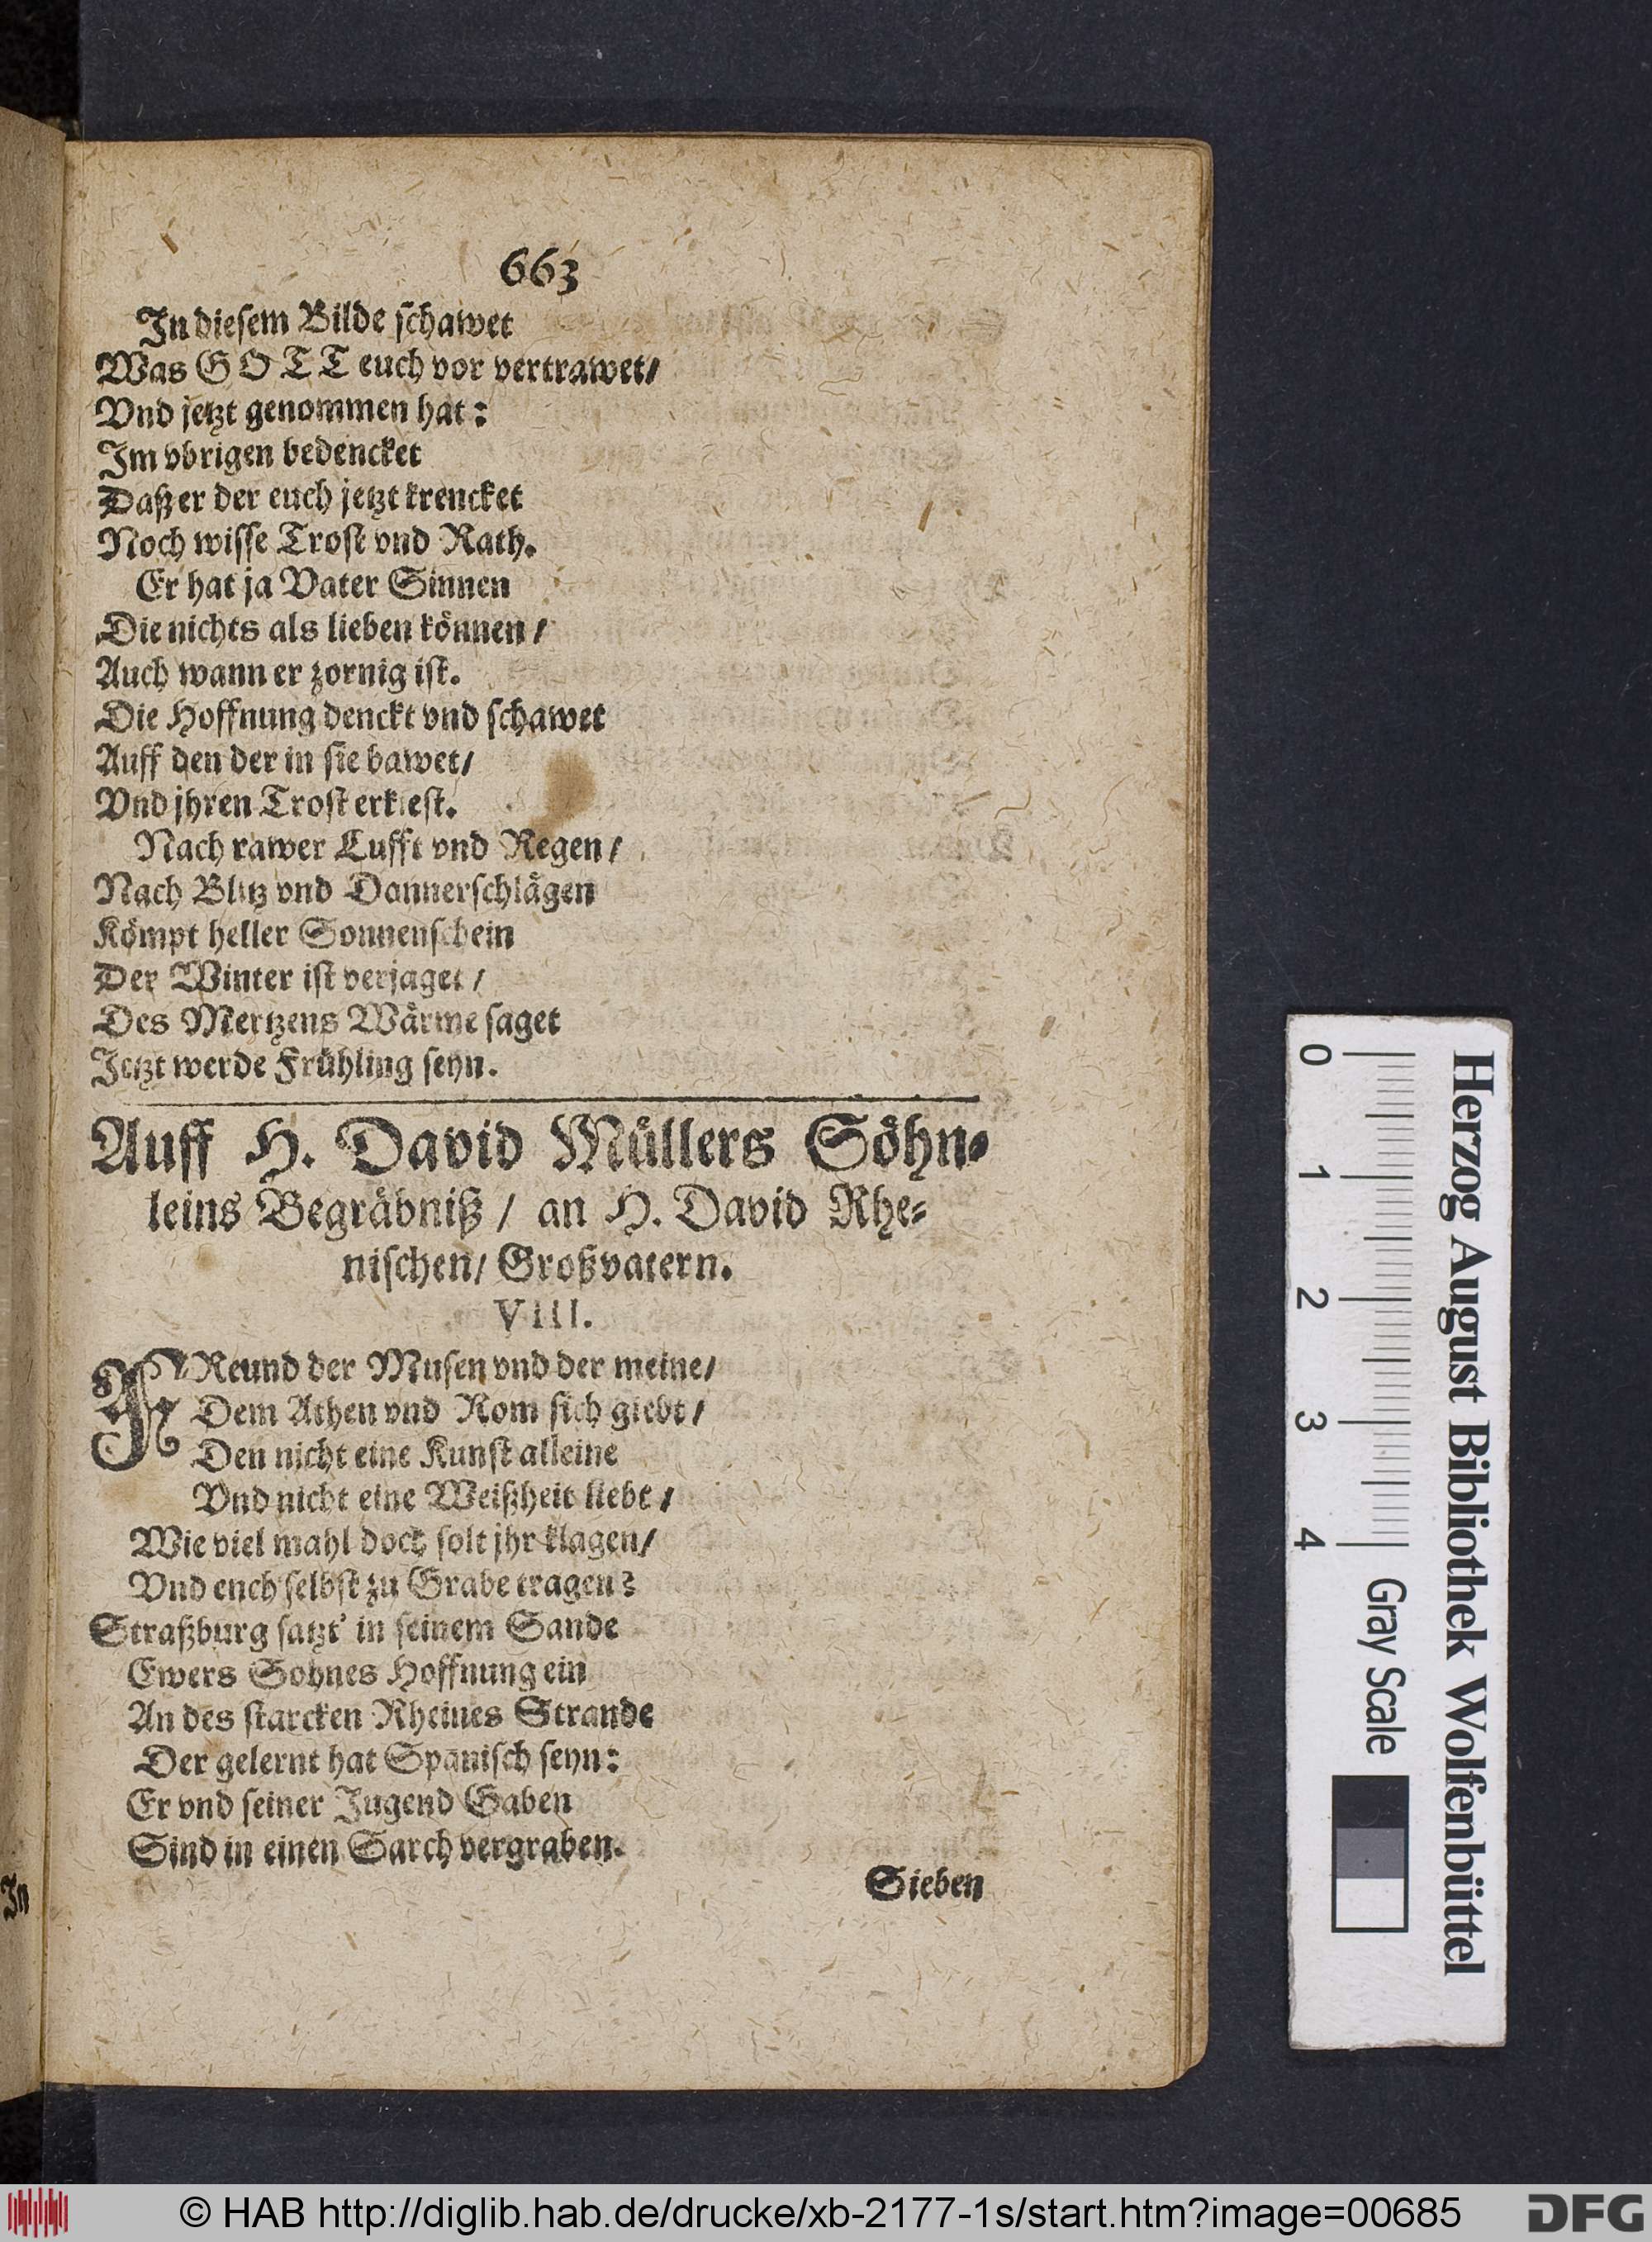 663
In diesem Bilde schawet
Was GOTT euch vor vertrawet/
Vnd jetzt genommen hat:
Im vbrigen bedencket
Daß er der euch jetzt krencket
Noch wisse Trost vnd Rath.
Er hat ja Vater Sinnen
Die nichts als lieben können/
Auch wann er zornig ist.
Die Hoffnung denckt vnd schawet
Auff den der in sie bawet/
Vnd jhren Trost erkiest.
Nach rawer Lufft vnd Regen/
Nach Blitz vnd Donnerschlägen
Kömpt heller Sonnenschein
Der Winter ist verjaget/
Des Mertzens Wärme saget
Jetzt werde Frühling seyn.
Auff H. David Müllers Söhn-
leins Begräbniß/ an H. David Rhe-
nischen/ Großvatern.
VIII.
FReund der Musen vnd der meine/
Dem Athen vnd Rom sich giebt/
Den nicht eine Kunst alleine
Vnd nicht eine Weißheit liebt/
Wie viel mahl doch solt jhr klagen/
Vnd euch selbst zu Grabe tragen?
Straßburg satzt' in seinem Sande
Ewers Sohnes Hoffnung ein
An des starcken Rheines Strande
Der gelernt hat Spanisch seyn:
Er vnd seiner Jugend Gaben
Sind in einen Sarch vergraben.
Sieben
In
Herzog August Bibliothek Wolfenbüttel
0 1 2 3 4 Gray Scale
© HAB http://diglib.hab.de/drucke/xb-2177-1s/start.htm?image=00685
DFG